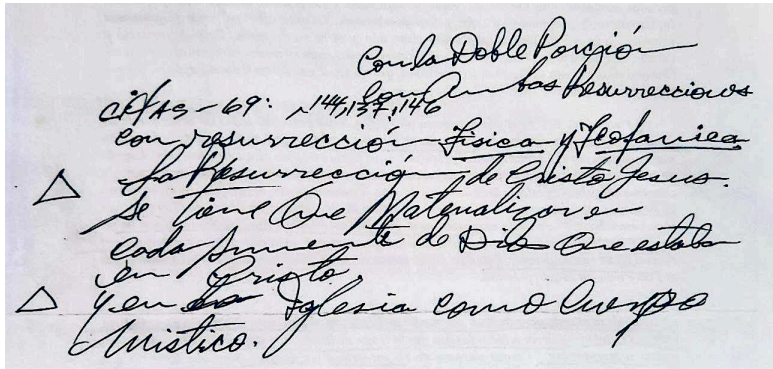 Con la Doble Porción
Con Ambas Resurrecciones
CitAS-69: 144,137,146
con resurrección Física y Teofanica
La Resurrección de Cristo Jesus.
se tiene Que Materializar en
cada simiente de Dios Que estaba
en Cristo.
y en la Iglesia como Cuerpo
Mistico.